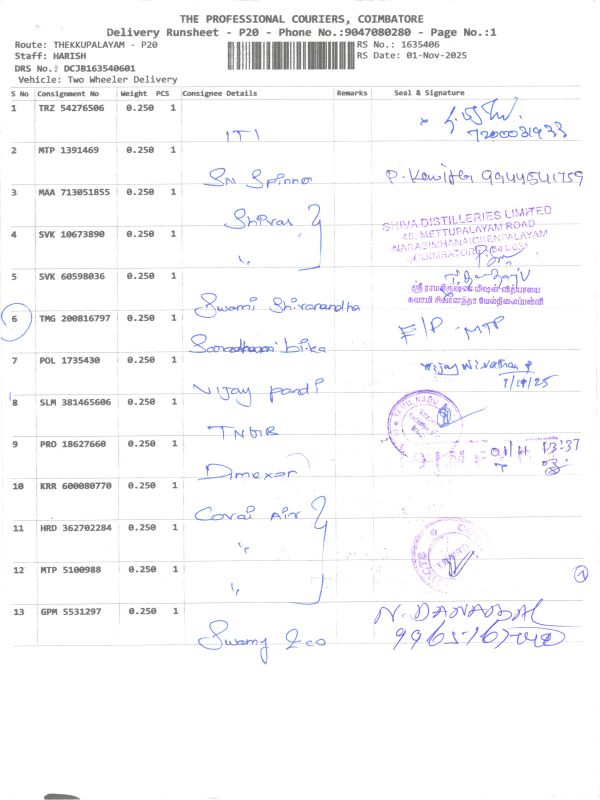 THE PROFESSIONAL COURIERS, COIMBATORE
Delivery Runsheet - P20 - Phone No.:9047080280 - Page No.:1
Route: THEKKUPALAYAM - P20
Staff: HARISH
DRS No.: DCJB163540601
Vehicle: Two Wheeler Delivery
RS No.: 1635406
RS Date: 01-Nov-2025
S No Consignment No Weight PCS Consignee Details Remarks Seal & Signature
1 TRZ 54276506 0.250 1
ITI 7200031933
2 MTP 1391469 0.250 1
Sri Spinno P. Kavitha 9944541759
3 MAA 713051855 0.250 1
Shivas
SHIVA DISTILLERIES LIMITED
46, METTUPALAYAM ROAD
NARASIMHANAICKENPALAYAM
4 SVK 10673890 0.250 1
"
5 SVK 60598036 0.250 1
Swami Shivanandha
ஸ்ரீ ராமகிருஷ்ண மிஷன் வித்யாலய
சுவாமி சிவானந்தா மேல்நிலைப்பள்ளி
6 TMG 200816797 0.250 1
F/P - MTP
7 POL 1735430 0.250 1
Vijay pandi
1/11/25
8 SLM 381465606 0.250 1
TAMIL NADU
9 PRO 18627660 0.250 1
Dmexor
01/11 13:37
10 KRR 600080770 0.250 1
Covai Air
11 HRD 362702284 0.250 1
"
12 MTP 5100988 0.250 1
"
1
13 GPM 5531297 0.250 1
Swamy & co
N. DANABAL